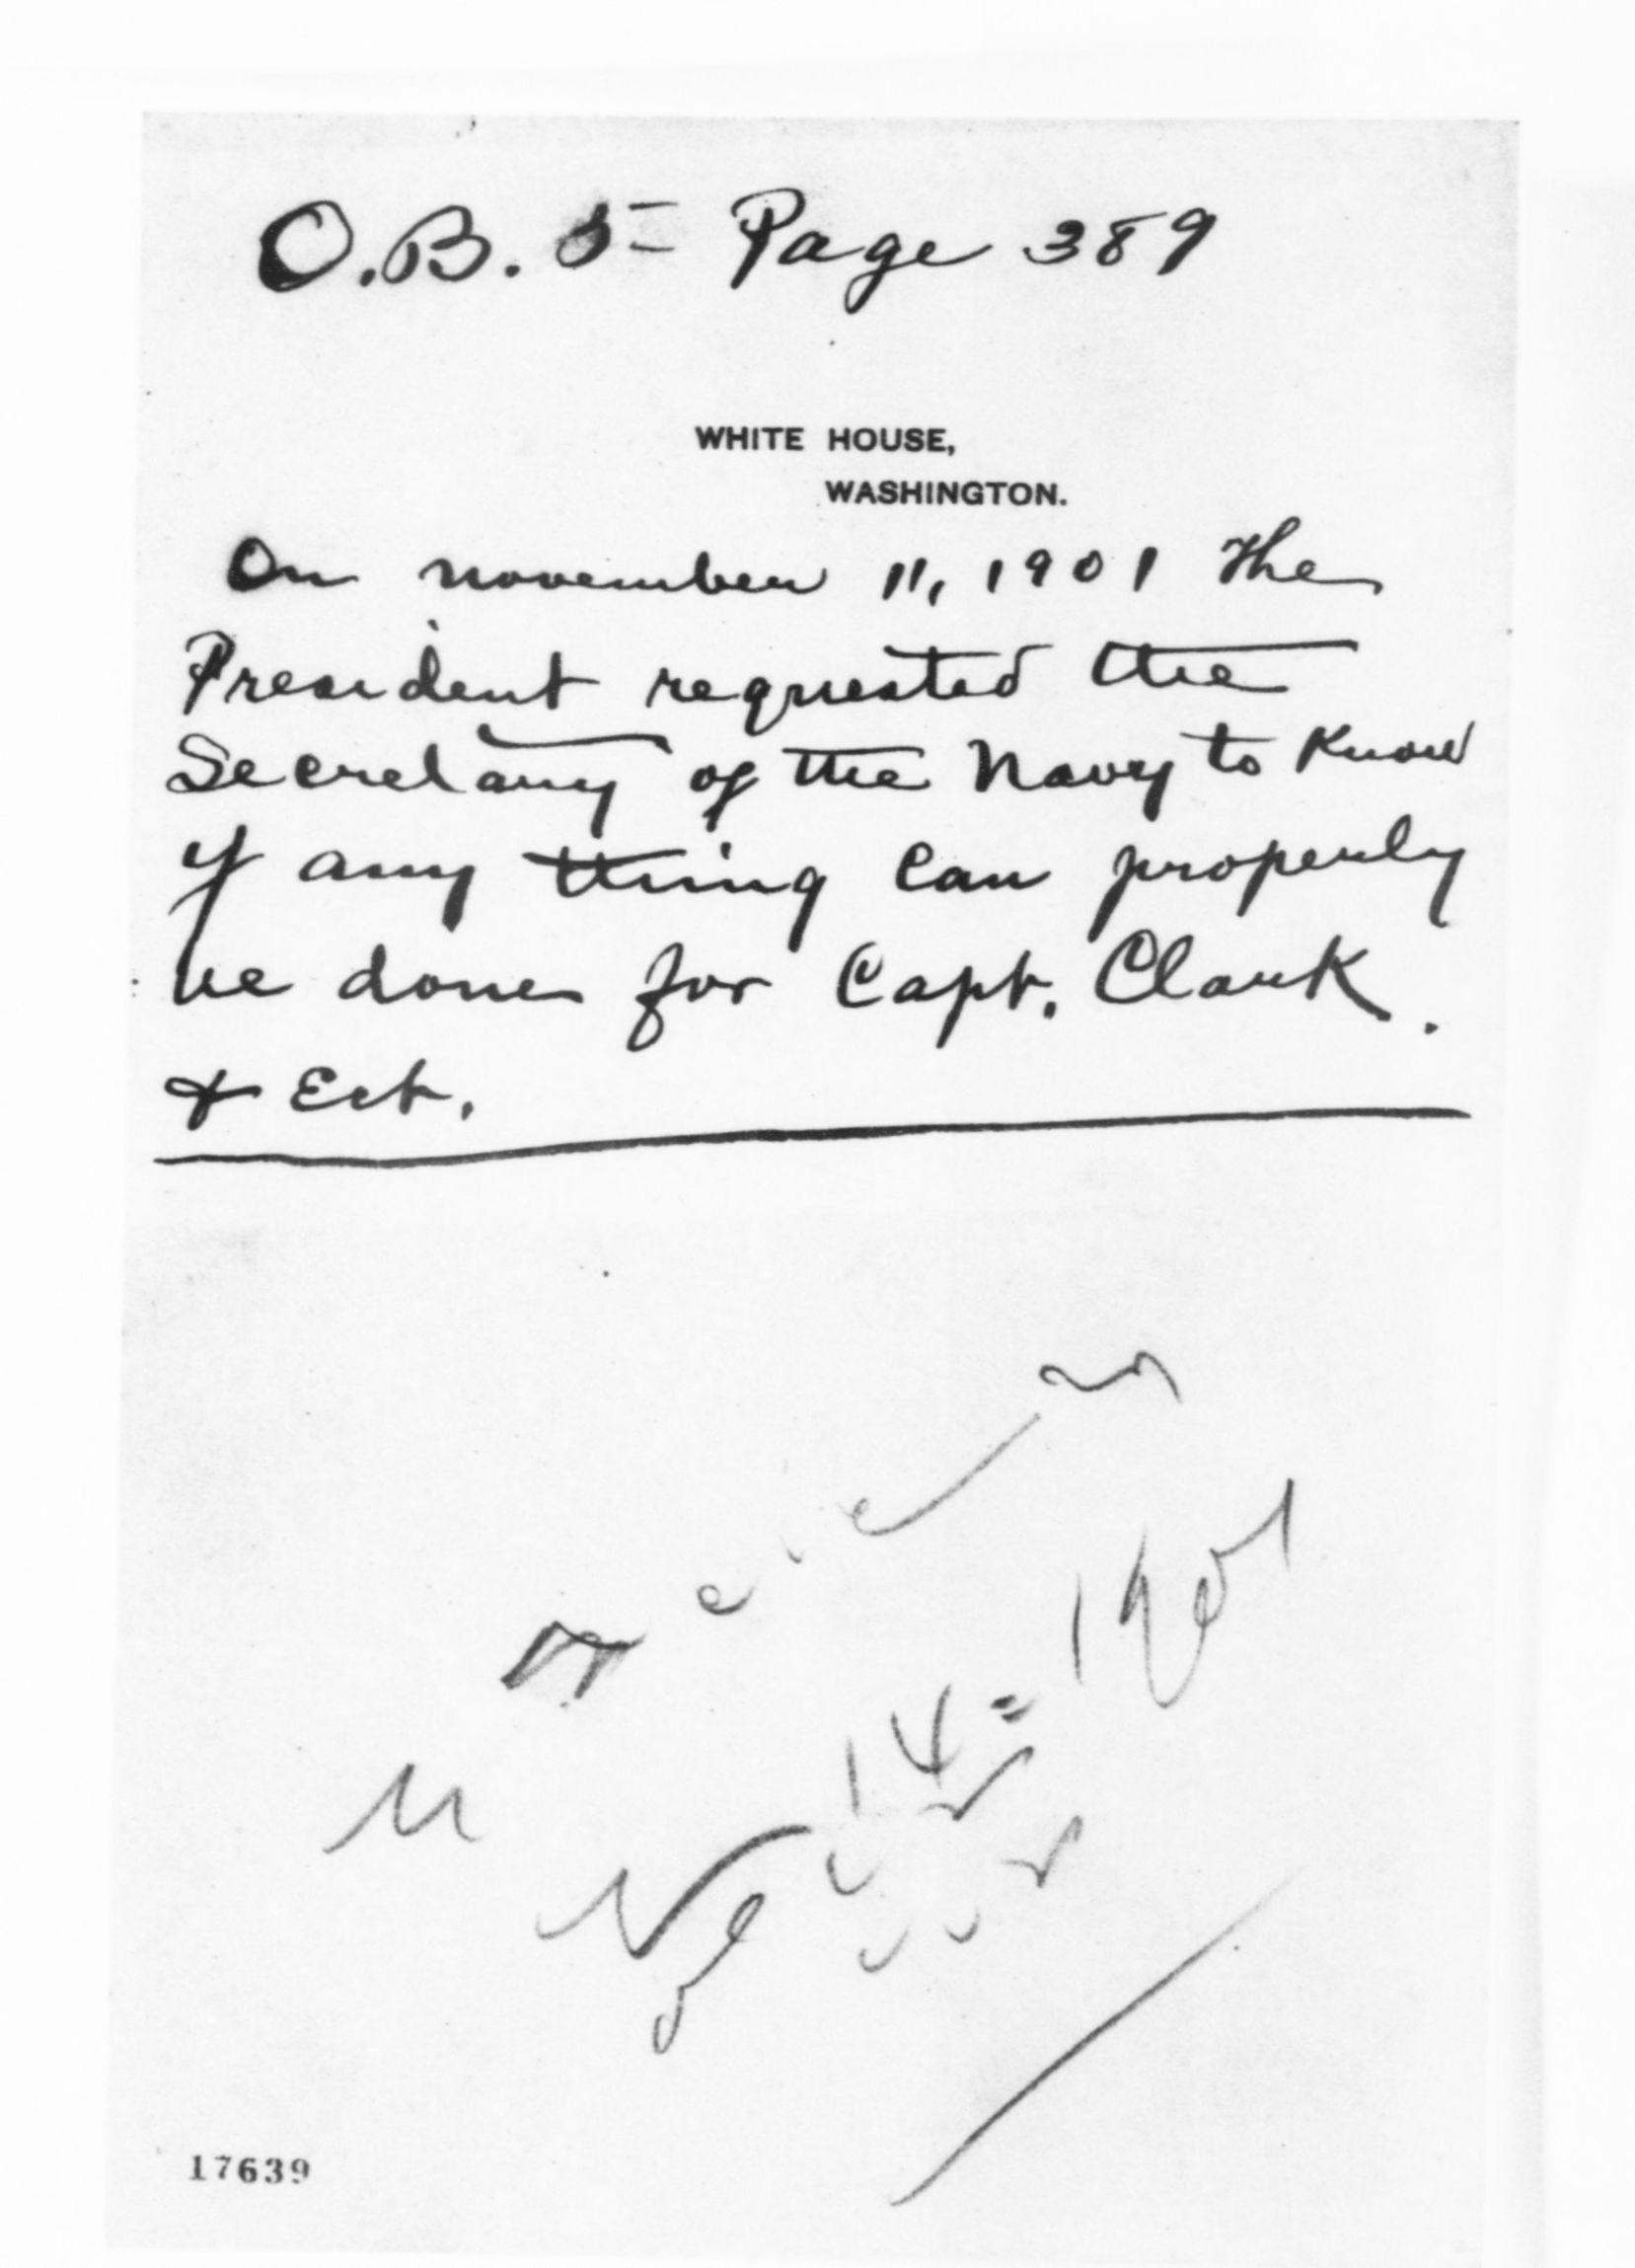 O.B. 5= Page 389
WHITE HOUSE,
WASHINGTON.
On november 11, 1901 the
President requested the
Secretary of the Navy to Know
if any thing can properly
be done for Capt. Clark.
& Ect.
14= 1901
17639